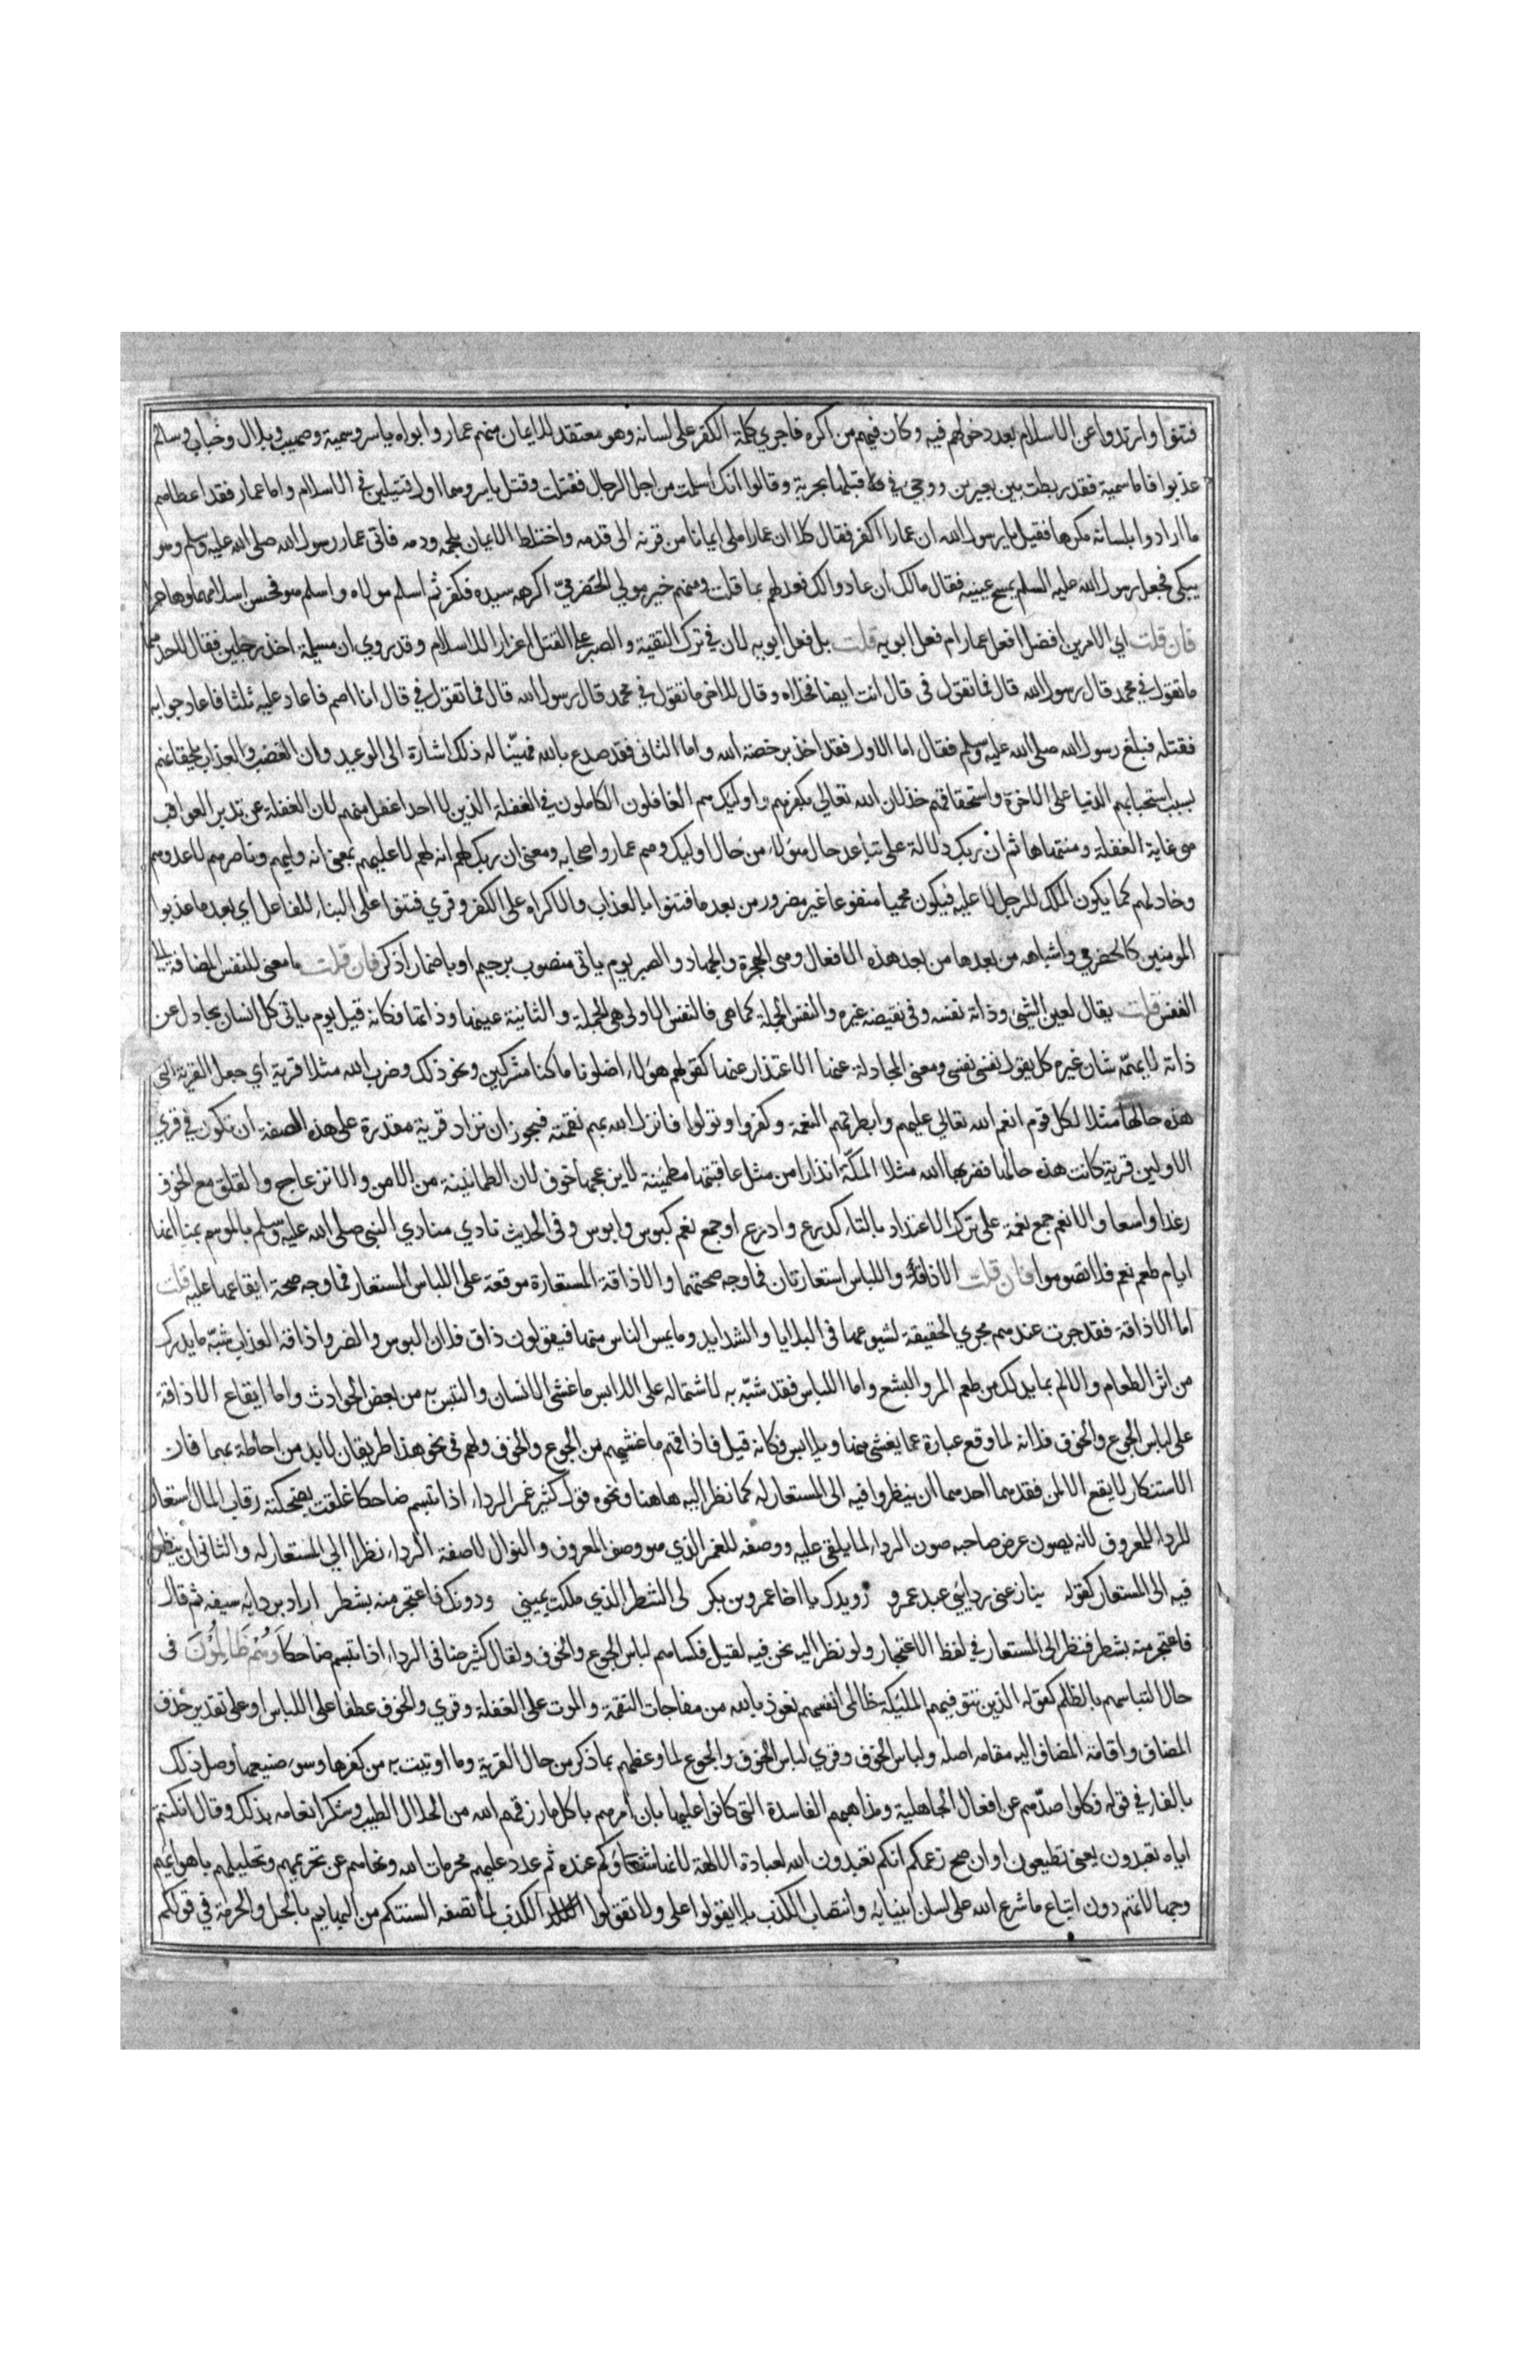 فتنوا وارتدوا عن الاسلام بعد دخولهم فيه وكان فيهم من اكره فاجري كلمة الكفر على لسانه وهو معتقد للايمان منهم عمار وابواه ياسر وسمية وصهيب وبلال وخباب وسالم
عذبوا فاما سمية فقد ربطت بين بعيرين ووجئ في قبلها بحربة وقالوا انك اسلمت من اجل الرجال فقتلت وقتل ياسر وهما اول قتيلين في الاسلام واما عمار فقد اعطاهم
ما ارادوا بلسانه مكرها فقيل يا رسول الله ان عمارا كفر فقال كلا ان عمارا ملى ايمانا من قرنه الى قدمه واختلط الايمان بلحمه ودمه فاتى عمار رسول الله صلى الله عليه وسلم وهو
يبكى فجعل رسول الله عليه السلم يمسح عينيه فقال مالك ان عادوا لك فعد لهم بما قلت ومنهم خير مولي الحضرميّ اكرهه سيده فكفر ثم اسلم مولاه واسلم هو فحسن اسلامهما وهاجرا
فان قلت اي الامرين افضل افعل عمار ام فعل ابويه قلت بل فعل ابويه لان في ترك التقية والصبر على القتل اعزازا للاسلام وقد روي ان مسيلمة اخذ رجلين فقال لاحدهما
ما تقول في محمد قال رسول الله قال فما تقول فى قال انت ايضا فخلاه وقال للاخر ما تقول في محمد قال رسول الله قال فما تقول في قال انا اصم فاعاد عليه ثلثا فاعاد جوابه
فقتله فبلغ رسول الله صلى الله عليه وسلم فقال اما الاول فقد اخذ برخصة الله واما الثانى فقد صدع بالله فهنيئا له ذلك اشارة الى الوعيد وان الغضب والعذاب يلحقانهم
بسبب استحبابهم الدنيا على الاخرة واستحقاقهم خذلان الله تعالي بكفرهم واوليك هم الغافلون الكاملون في الغفلة الذين لا احد اغفل منهم لان الغفلة عن تدبر العواقب
هو غاية الغفلة ومنتهاها ثم ان ربك دلالة على تباعد حال هؤلاء من حال اوليك وهم عمار واصحابه ومعنى ان ربك لهم انه لهم لا عليهم بمعنى انه وليهم وناصرهم لا عدوهم
وخاذلهم كما يكون الملك للرجل لا عليه فيكون محميا منفوعا غير مضرور من بعد ما فتنوا بالعذاب والاكراه على الكفر وقري فتنوا على البناء للفاعل اي بعد ما عذبوا
المومنين كالحضرمي واشباهه من بعدها من بعد هذه الافعال وهى الهجرة والجهاد والصبر يوم ياتى منصوب برحيم او باضمار اذكر فان قلت ما معنى للنفس المضافة الى
النفس قلت يقال لعين الشي وذاته نفسه وفى نقيضه غيره والنفس الجملة كما هى فالنفس الاولى هى الجملة والثانية عينها وذاتها فكانه قيل يوم ياتى كل انسان يجادل عن
ذاته لا يهمّه شان غيره كل يقول نفسى نفسى ومعنى المجادلة عنها الاعتذار عنها كقولهم هولاء اضلونا ما كنا مشركين ونحو ذلك وضرب الله مثلا قرية اي جعل القرية التى
هذه حالها مثلا لكل قوم انعم الله تعالي عليهم وابطرتهم النعمة وكفروا وتولوا فانزل الله بهم نقمته فيجوز ان تراد قرية مقدرة على هذه الصفة ان تكون في قري
الاولين قرية كانت هذه حالها فضربها الله مثلا لمكّة انذارا من مثل عاقبتها مطمئنة لا يزعجها خوف لان الطمانينة من الامن والانزعاج والقلق مع الخوف
رغدا واسعا والانعم جمع نعمة على ترك الاعتداد بالتاء كدرع وادرع او جمع نعم كبوس وابوس وفى الحديث نادي منادي النبي صلى الله عليه وسلم بالموسم بمنا انها
ايام طعم نعم فلا تصوموا فان قلت الاذاقة واللباس استعارتان فما وجه صحتهما والاذاقة المستعارة موقعة على اللباس المستعار فما وجه صحة ايقاعها عليه قلت
اما الاذاقة فقد جرت عندهم مجري الحقيقة لشيوعها فى البلايا والشدايد وما يمس الناس منها فيقولون ذاق فلان البوس والضر واذاقه العذاب شبّه ما يدرك
من اثر الطعام والالم بما يدرك من طعم المر والبشع واما اللباس فقد شبّه به لاشتماله على اللابس ما غشى الانسان والتبس به من بعض الحوادث واما ايقاع الاذاقة
على لباس الجوع والخوف فلانه لما وقع عبارة عما يغشى منها ويلابس فكانه قيل فاذاقهم ما غشيهم من الجوع والخوف ولهم فى نحو هذا طريقان لابد من احاطة بهما فان
الاستنكار لا يقع الا لمن فقدهما احدهما ان ينظروا فيه الى المستعار له كما نظر اليه هاهنا ونحوه قول كثير غمر الرداء اذا تبسم ضاحكا غلقت بضحكته رقاب المال استعار
للرداء للمعروف لانه يصون عرض صاحبه صون الرداء لما يلقى عليه ووصفه للغمر الذي هو وصف المعروف والنوال لا صفة الرداء نظرا الى المستعار له والثانى ان ينظروا
فيه الى المستعار كقوله ينازعنى ردايي عبد عمرو رويدك يا اخا عمرو بن بكر لى الشطر الذي ملكت يميني ودونك فاعتجر منه بشطر اراد بردايه سيفه ثم قال
فاعتجر منه بشطر فنظر الى المستعار في لفظ الاعتجار ولو نظر اليه نحن فيه لقيل فكساهم لباس الجوع والخوف ولقال كثير ضافى الرداء اذا تبسم ضاحكا وَهُمْ ظَالِمُونَ فى
حال التباسهم بالظلم كقوله الذين تتوفيهم المليكة ظالمى انفسهم نعوذ بالله من مفاجات النقمة والموت على الغفلة وقري والخوف عطفا على اللباس او على تقدير حذف
المضاف واقامة المضاف اليه مقامه اصله ولباس الخوف وقري لباس الخوف والجوع لما وعظهم بما ذكر من حال القرية وما اوتيت به من كفرها وسوء صنيعها وصل ذلك
بالفاء في قوله فكلوا صدّهم عن افعال الجاهلية ومذاهبهم الفاسدة التى كانوا عليها بان امرهم باكل ما رزقهم الله من الحلال الطيب وشكر انعامه بذلك وقال ان كنتم
اياه تعبدون يعنى تطيعون او ان صح زعمكم انكم تعبدون الله لعبادة الالهة لانها شفعاوكم عنده ثم عدد عليهم محرمات الله ونهاهم عن تحريمهم وتحليلهم باهوايهم
وجهالاتهم دون اتباع ما شرع الله على لسان انبيايه وانتصاب الكذب بلا يقولوا على ولا تقولوا الكذب لما تصفه السنتكم من البهايم بالحل والحرمة في قولكم